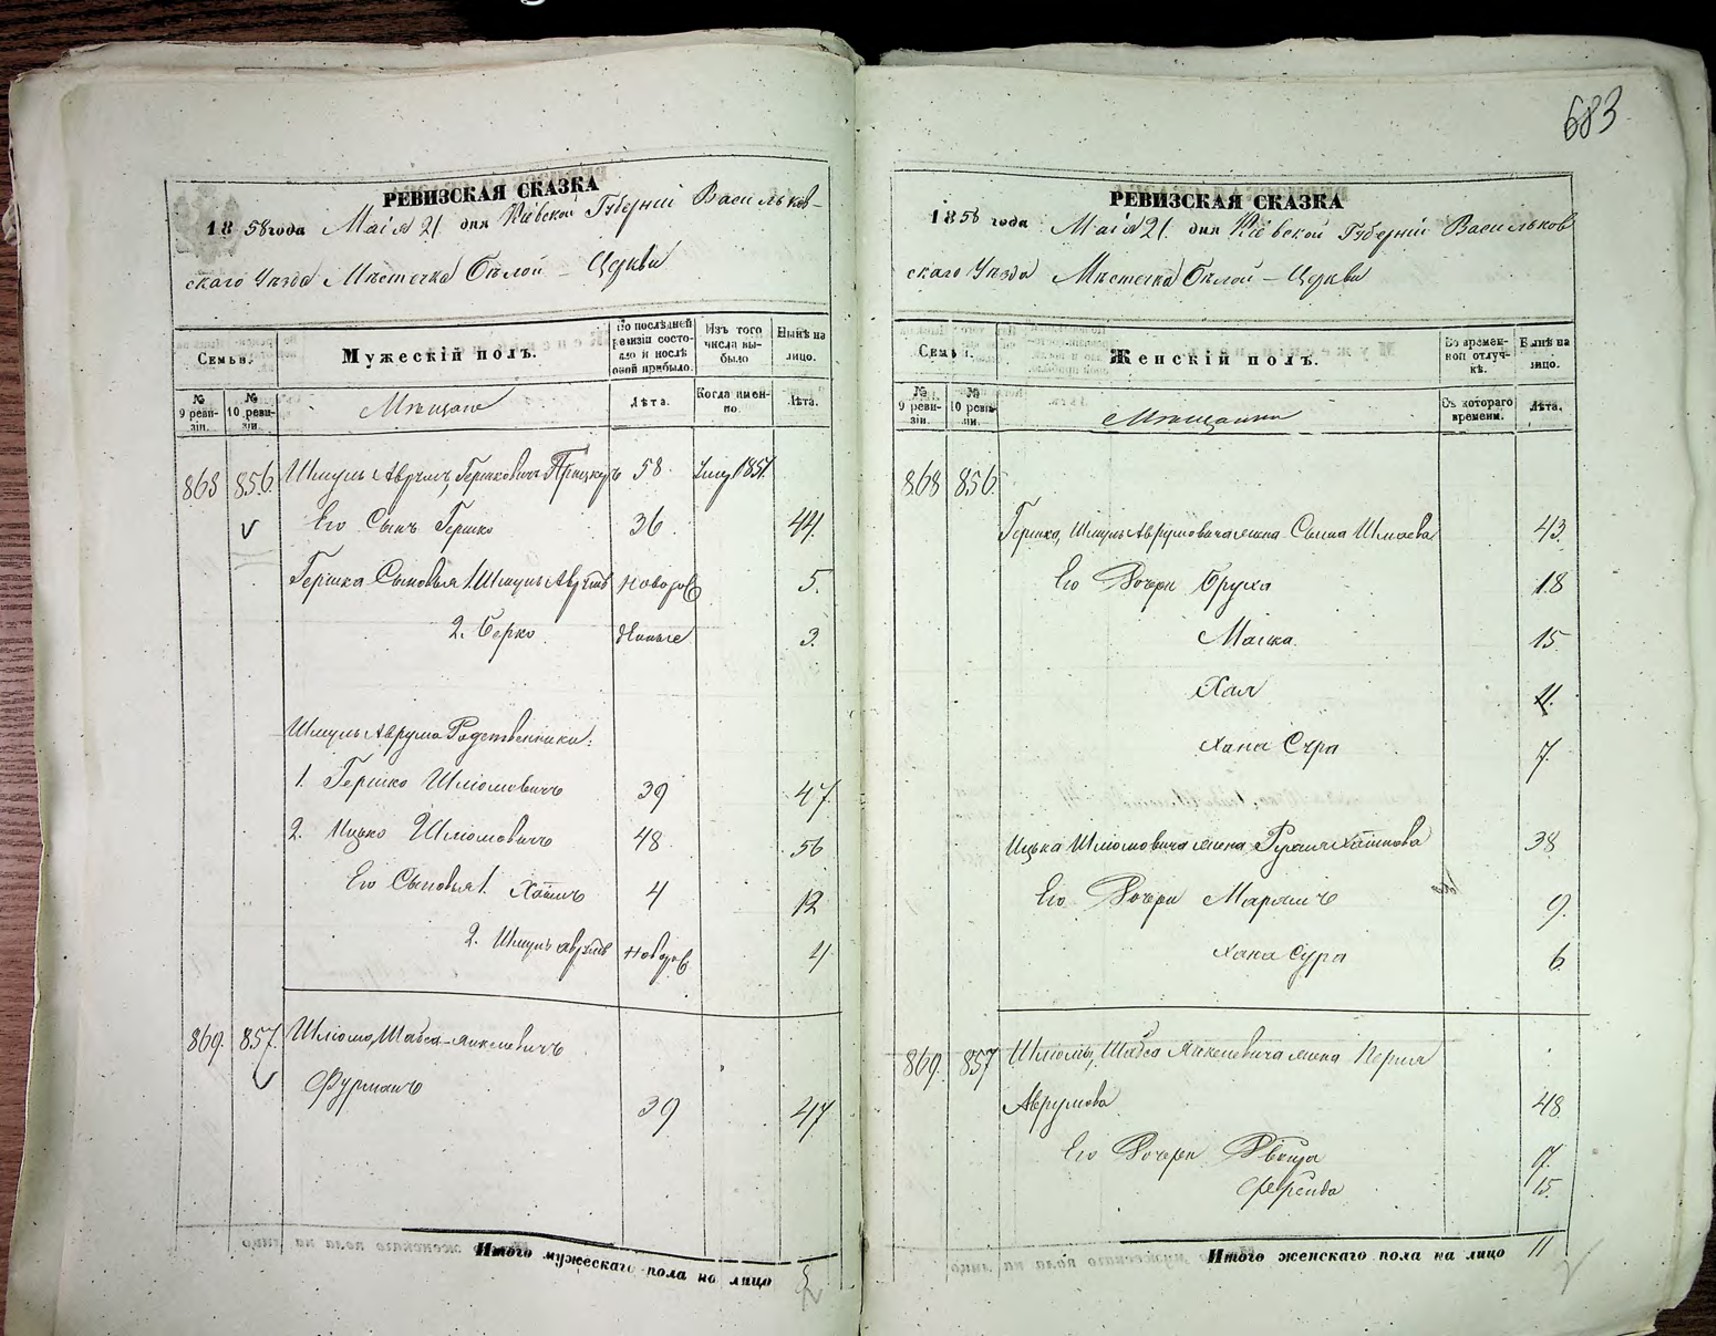 683
РЕВИЗСКАЯ СКАЗКА
1858 года Маія 21 дня Кіевской Губерніи Васильков-
скаго Уѣзда Мѣстечка Бѣлой – Церкви
Семьи. Мужескій полъ. По послѣдней ревизіи состояло и послѣ оной прибыло. Изъ того числа выбыло Нынѣ на лицо.
№ 9 ревизіи. № 10 ревизіи. Мѣщане Лѣта. Когда именно. Лѣта.
868 856 Шмуль Аврумъ Гершковичъ Прицкеръ 58 Умер 1851
Его Сынъ Гершко 36 44
Гершка Сыновья 1. Шмуль Аврумъ новорож 5.
2. Берко денные 3.
Шмуль Аврума Родственники:
1. Гершко Шліомовичъ 39 47
2. Ицько Шліомовичъ 48 56
Его Сыновья 1. Хаимъ 4 12
2. Шмуль Аврумъ новорож 4
869 857 Шліома, Шабса-Янкелевичъ
Фурманъ
39 47
Итого мужескаго пола на лицо
РЕВИЗСКАЯ СКАЗКА
1858 года Маія 21. дня Кіевской Губерніи Васильков
скаго Уѣзда Мѣстечка Бѣлой – Церкви
Семьи. Женскій полъ. Во временной отлучкѣ. Нынѣ на лицо.
№ 9 ревизіи. № 10 ревизіи. Мѣщанки Съ котораго времени. Лѣта.
868 856
Гершка, Шмуль Аврумовича жена Сыма Шмаева 43
Его Дочери Бруха 18
Малка 15
Хая 11
Хана Сура 7
Ицька Шліомовича жена Рухля Хаимова 38
Его Дочери Марьямъ 9.
Хана Сура 6
869 857 Шліомы, Шабса Янкелевича жена Перля
Аврумова 48
Его Дочери Двойра
Фрейда 15
Итого женскаго пола на лицо 11